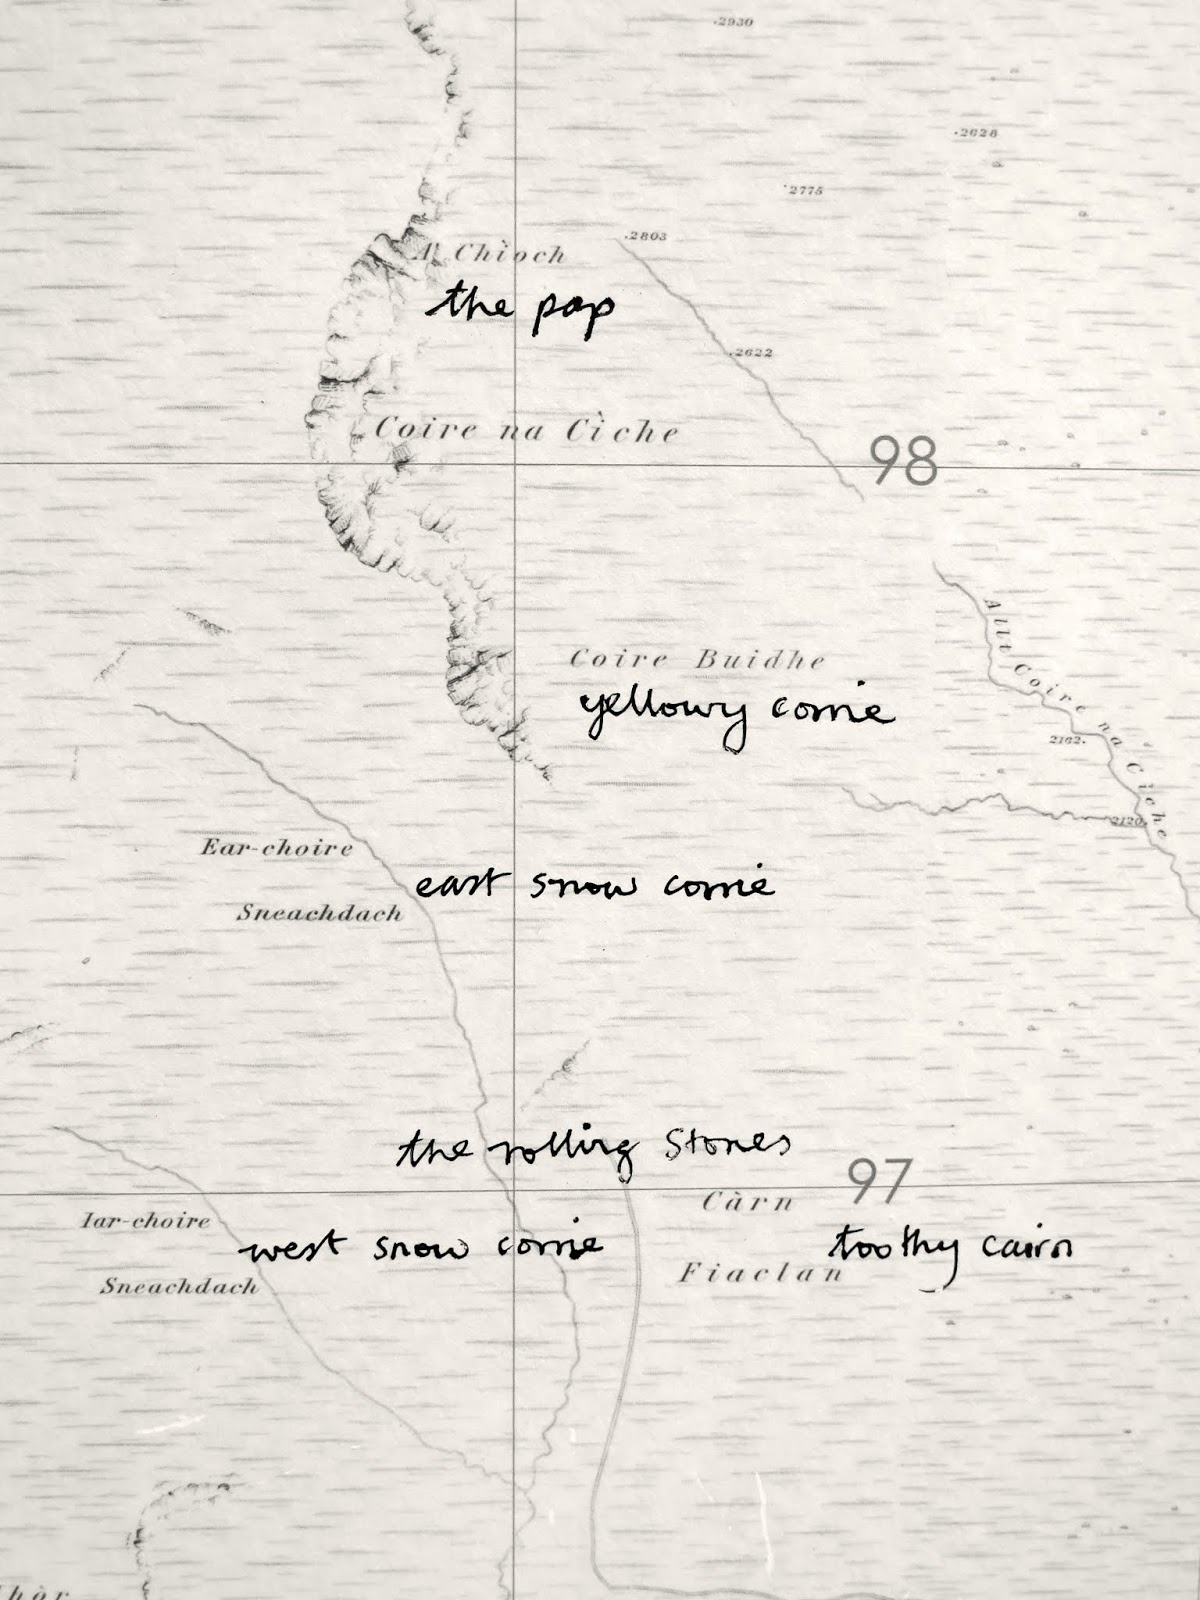 .2930
.2628
.2775
.2803
A' Chìoch
the pap
.2622
Coire na Cìche
98
Allt Coire na Cìche
Coire Buidhe
yellowy corrie
2162.
2120.
Ear-choire
east snow corrie
Sneachdach
the rolling Stones
97
Càrn
Iar-choire
west snow corrie
toothy cairn
Fiaclan
Sneachdach